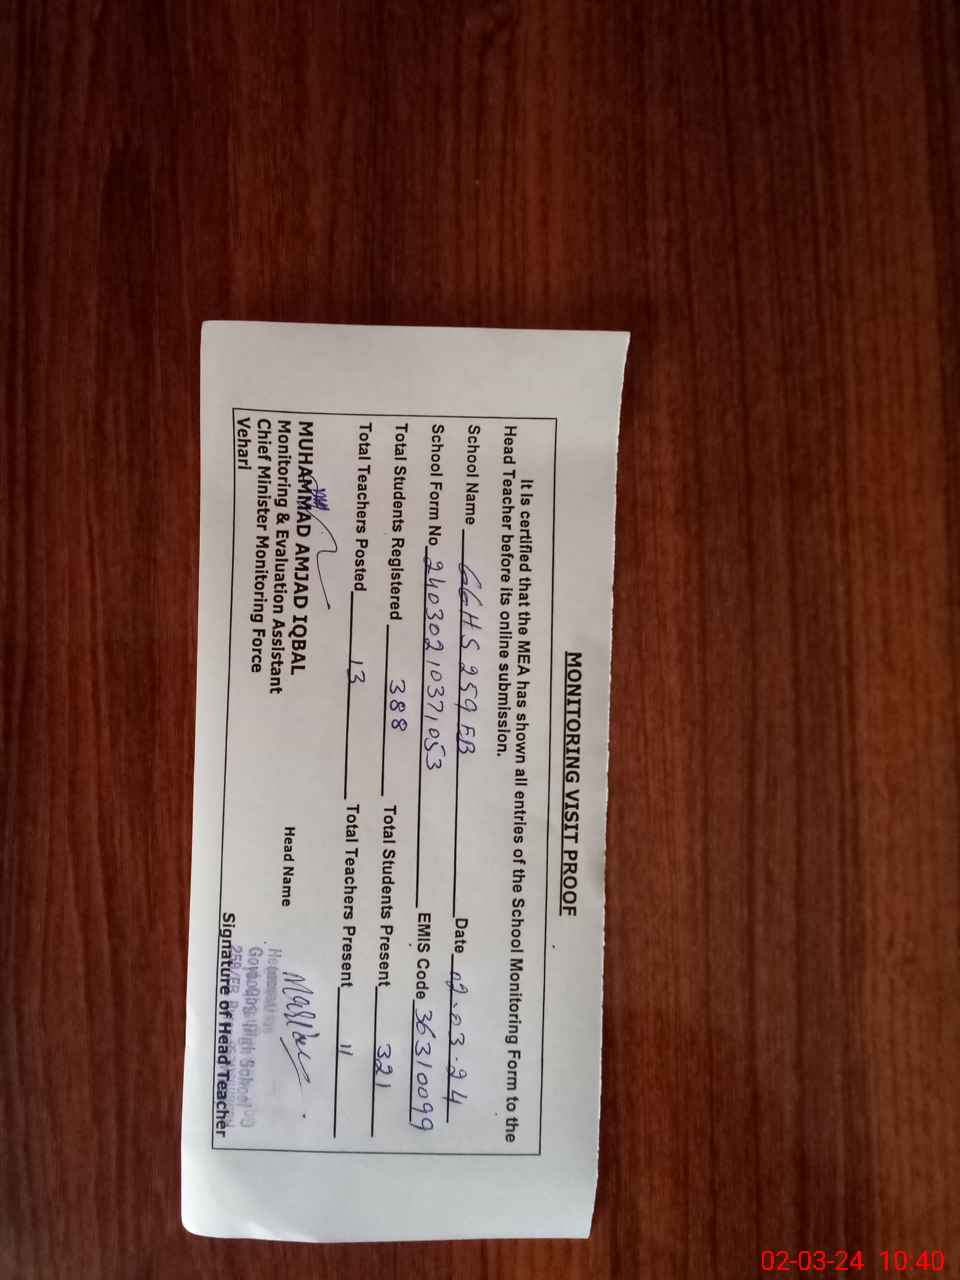 MONITORING VISIT PROOF
It is certified that the MEA has shown all entries of the School Monitoring Form to the
Head Teacher before its online submission.
School Name GGHS 259 EB Date 02.03.24
School Form No 2403021037,053 EMIS Code 36310099
Total Students Registered 388 Total Students Present 321
Total Teachers Posted 13 Total Teachers Present 11
MUHAMMAD AMJAD IQBAL
Monitoring & Evaluation Assistant
Chief Minister Monitoring Force
Vehari
Head Name
High School
Signature of Head Teacher
02-03-24 10:40